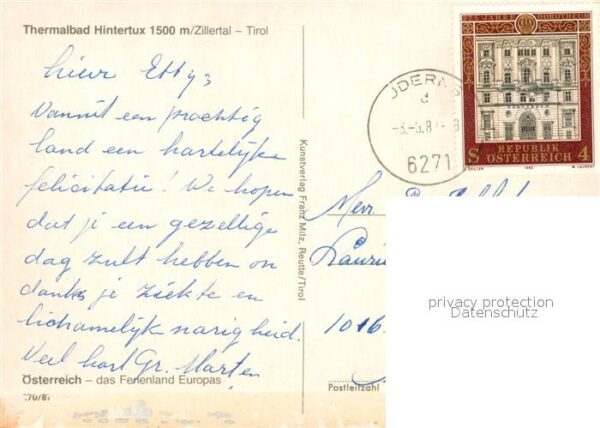 Thermalbad Hintertux 1500 m/Zillertal – Tirol
Vannuit een prachtig
land een hartelijke
felicitatie! We hopen
dat je een gezellige
dag zult hebben on
danks je ziekte en
lichamelijke narigheid.
Veel hart Gr. Marten
Österreich – das Ferienland Europas
Kunstverlag Franz Milz, Reutte/Tirol
REPUBLIK
S ÖSTERREICH 4
1982
d
6271
Mevr
1016
Postleitzahl
privacy protection
Datenschutz